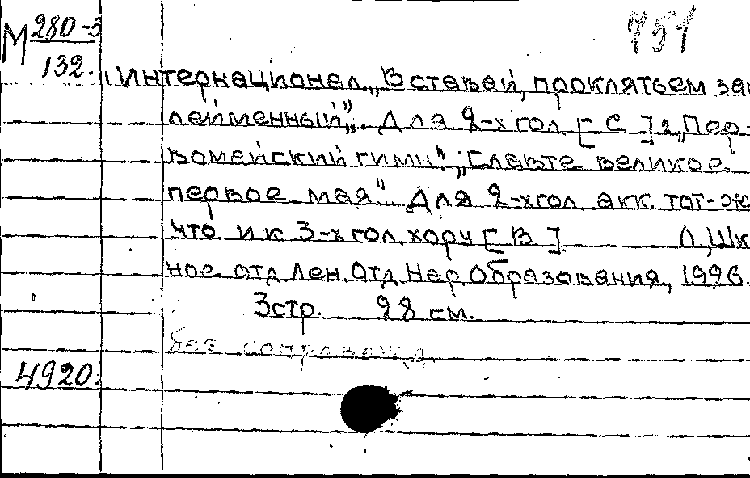 М 280-3
132.
751
1 Интернационал „Вставай, проклятьем за
лейменный". Для 2-х гол [С] 2 „Пер-
вомайский гимн". „Славьте великое
первое мая" Для 2-х гол акк. тот-ж
что и к 3-х гол хору [В] Л, Шк
ное отд Лен. Отд Нар Образования, 1926.
3 стр. 28 см.
без сопровожд.
4920.